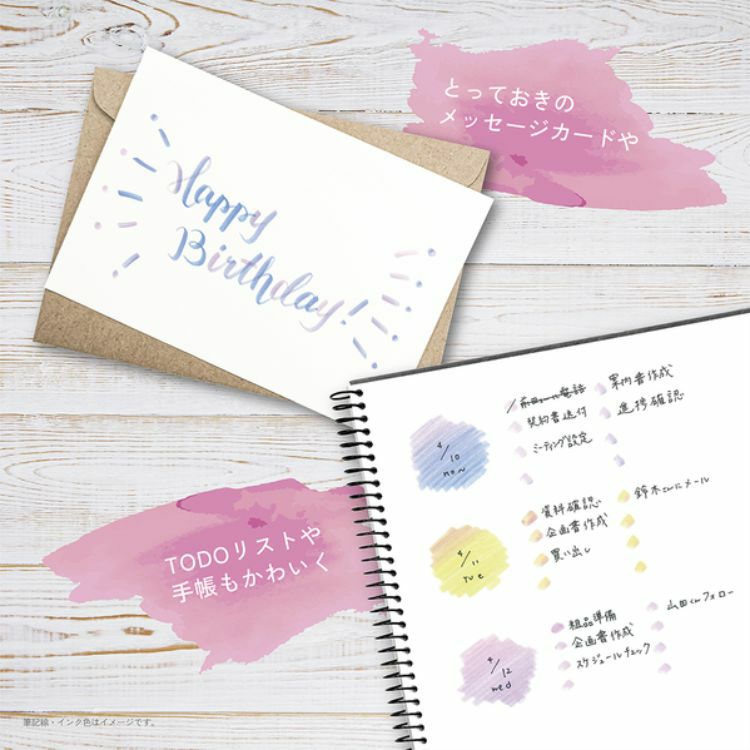 とっておきの
メッセージカードや
Happy
Birthday!
4/10
mon
前田さんに電話
契約書送付
ミーティング設定
案内書作成
進捗確認
TODOリストや
手帳もかわいく
4/11
tue
資料確認
企画書作成
買い出し
鈴木さんにメール
4/12
wed
粗品準備
企画書作成
スケジュールチェック
山田くんフォロー
筆記線・インク色はイメージです。